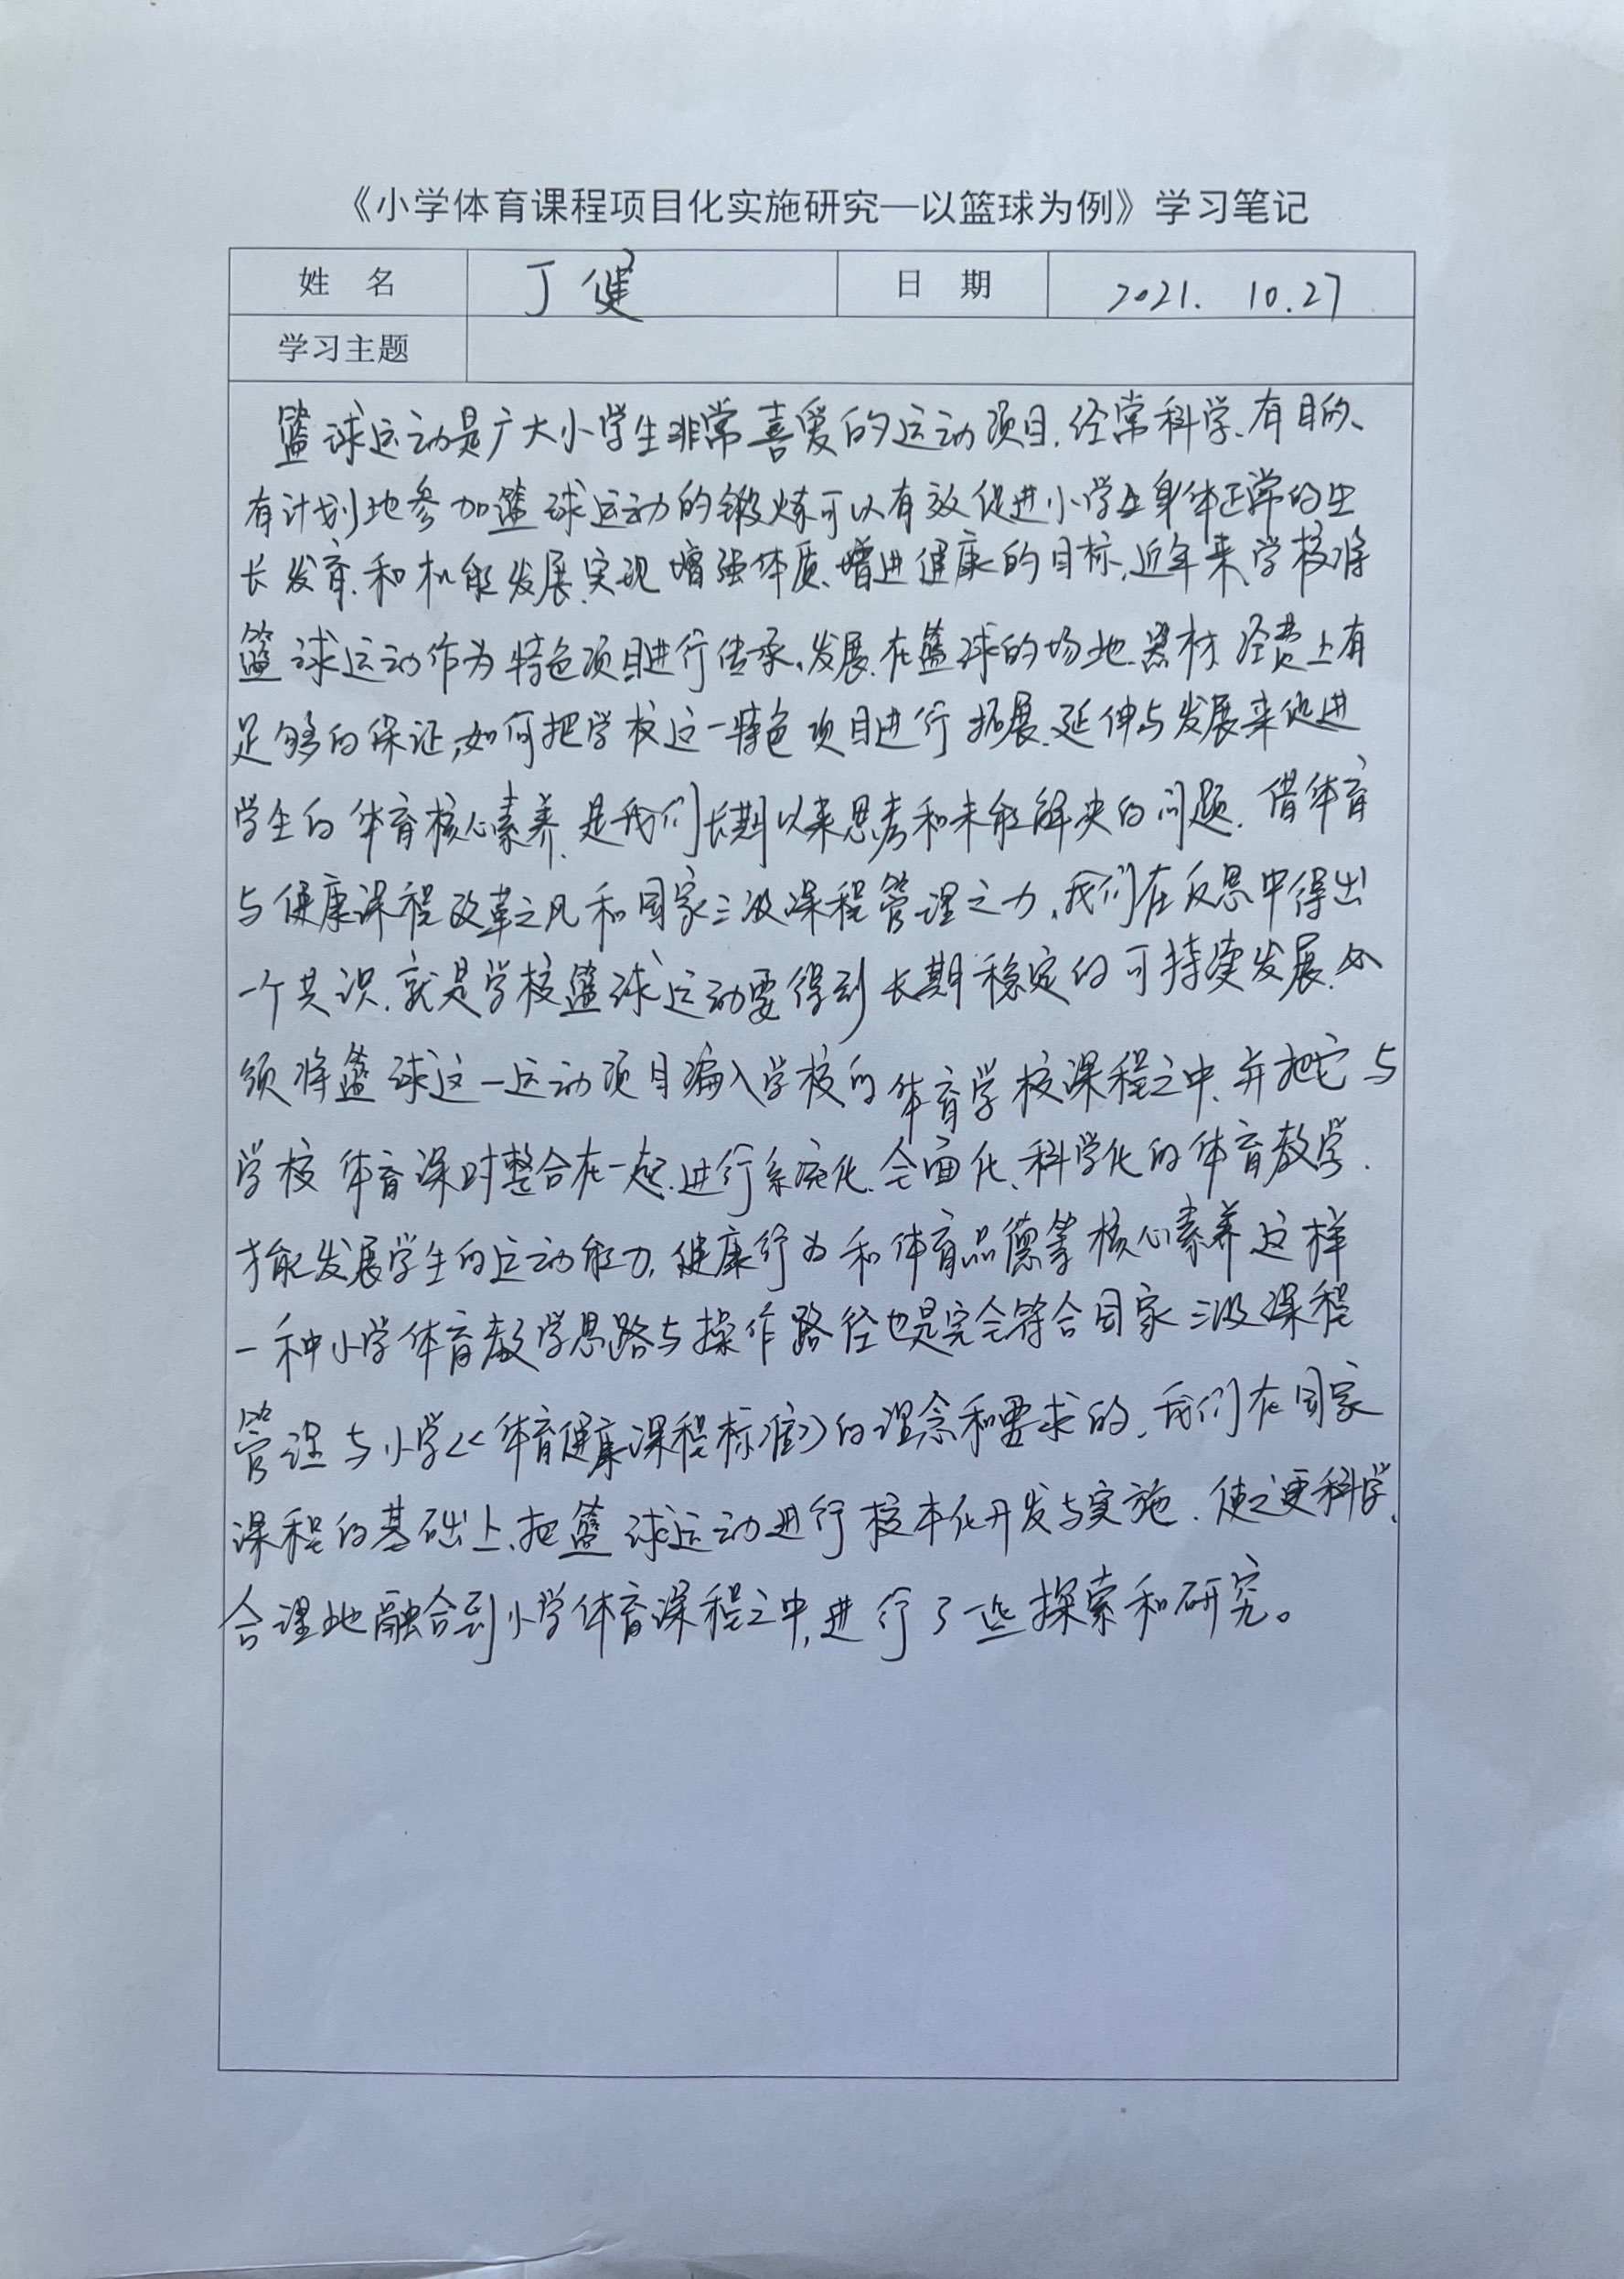 《小学体育课程项目化实施研究—以篮球为例》学习笔记
姓 名 丁健 日 期 2021. 10.27
学习主题
篮球运动是广大小学生非常喜爱的运动项目,经常科学、有目的、
有计划地参加篮球运动的锻炼可以有效促进小学生身体正常的生
长发育.和机能发展,实现增强体质、增进健康的目标,近年来,学校将
篮球运动作为特色项目进行传承、发展.在篮球的场地.器材.经费上有
足够的保证,如何把学校这一特色项目进行拓展.延伸与发展来促进
学生的体育核心素养.是我们长期以来思考和未能解决的问题.借体育
与健康课程改革之风和国家三级课程管理之力,我们在反思中得出
一个共识.就是学校篮球运动要得到长期稳定的可持续发展.必
须将篮球这一运动项目编入学校的体育学校课程之中.并把它与
学校体育课时整合在一起.进行系统化.全面化、科学化的体育教学.
才能发展学生的运动能力,健康行为和体育品德等核心素养这样
一种小学体育教学思路与操作路径也是完全符合国家三级课程
管理与小学<<体育健康课程标准>>的理念和要求的,我们在国家
课程的基础上,把篮球运动进行校本化开发与实施.使之更科学、
合理地融合到小学体育课程之中,进行了一些探索和研究。